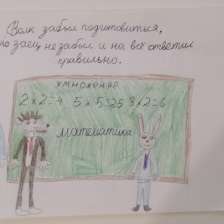 Волк забыл подготовиться,
но заец не забыл и на всё ответил
правильно.
умножение
2х2=4 5х5=25 3х2=6
математика